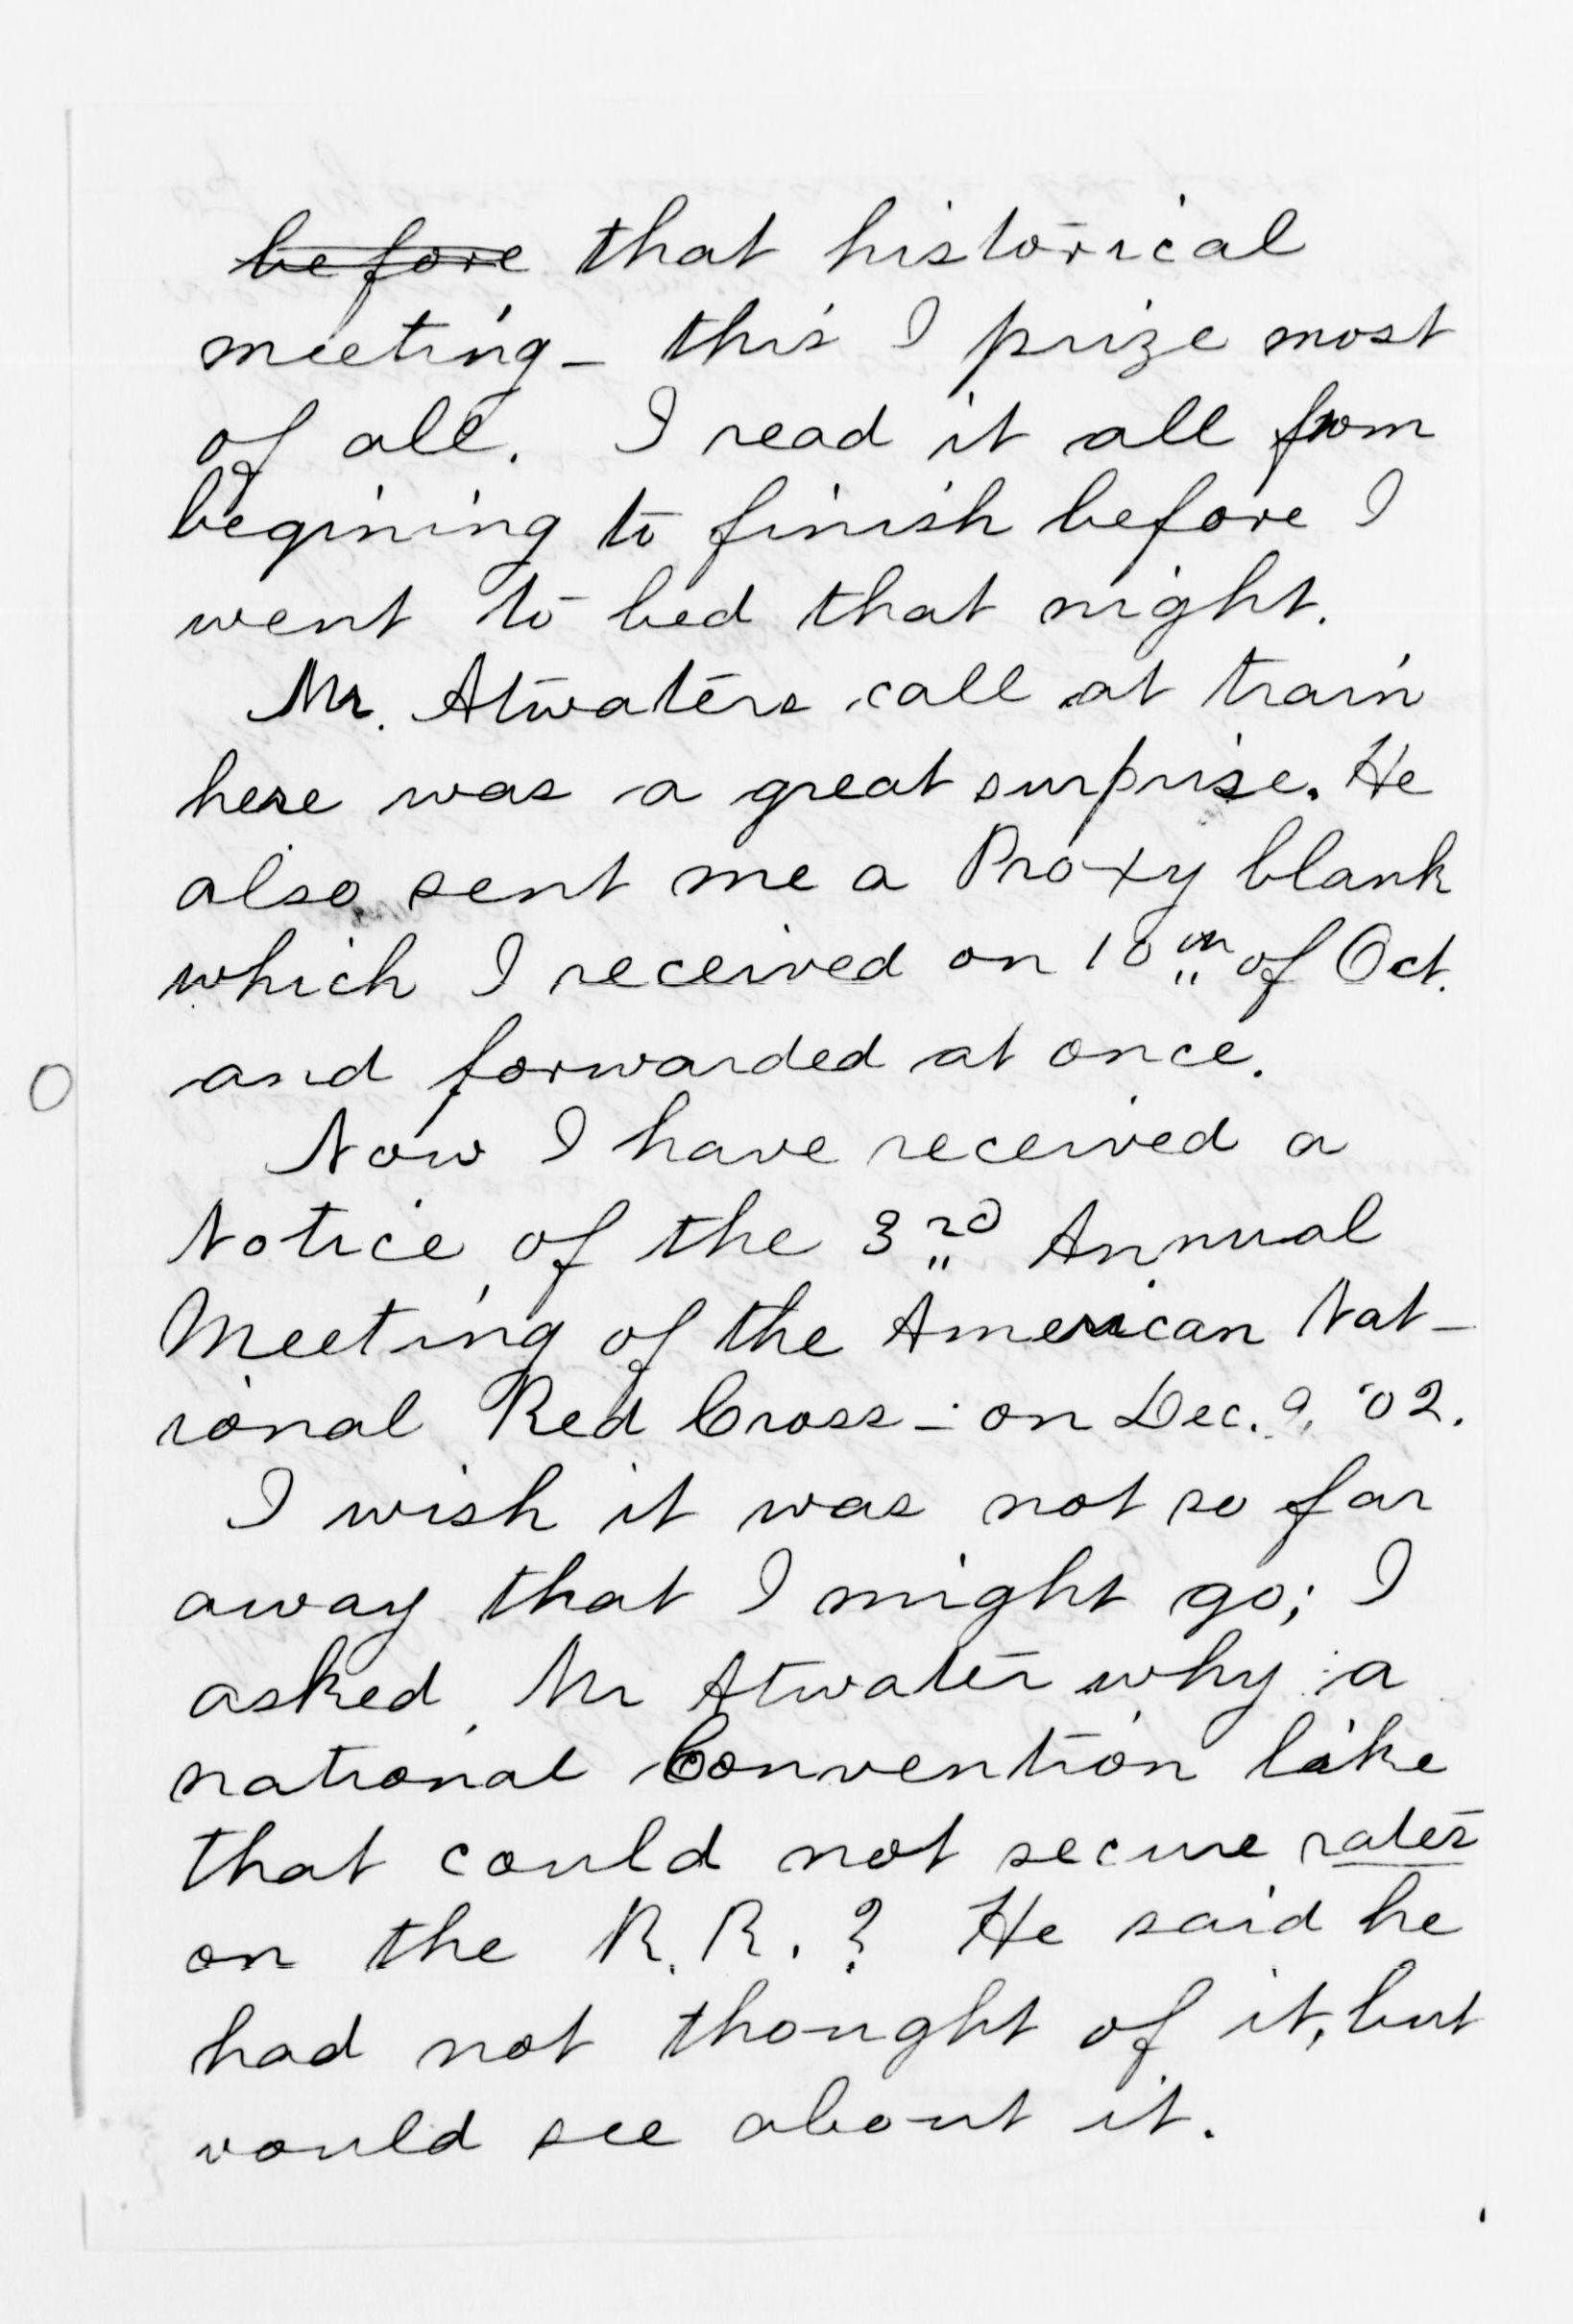 ~~before~~ that historical
meeting – this I prize most
of all. I read it all from
begining to finish before I
went to bed that night.
Mr. Atwaters call at train
here was a great surprise. He
also sent me a Proxy blank
which I received on 10th of Oct.
and forwarded at once.
Now I have received a
Notice of the 3rd Annual
Meeting of the American Nat–
ional Red Cross – on Dec. 9, '02.
I wish it was not so far
away that I might go; I
asked Mr Atwater why a
national Convention like
that could not secure rates
on the R. R. ? He said he
had not thought of it, but
would see about it.